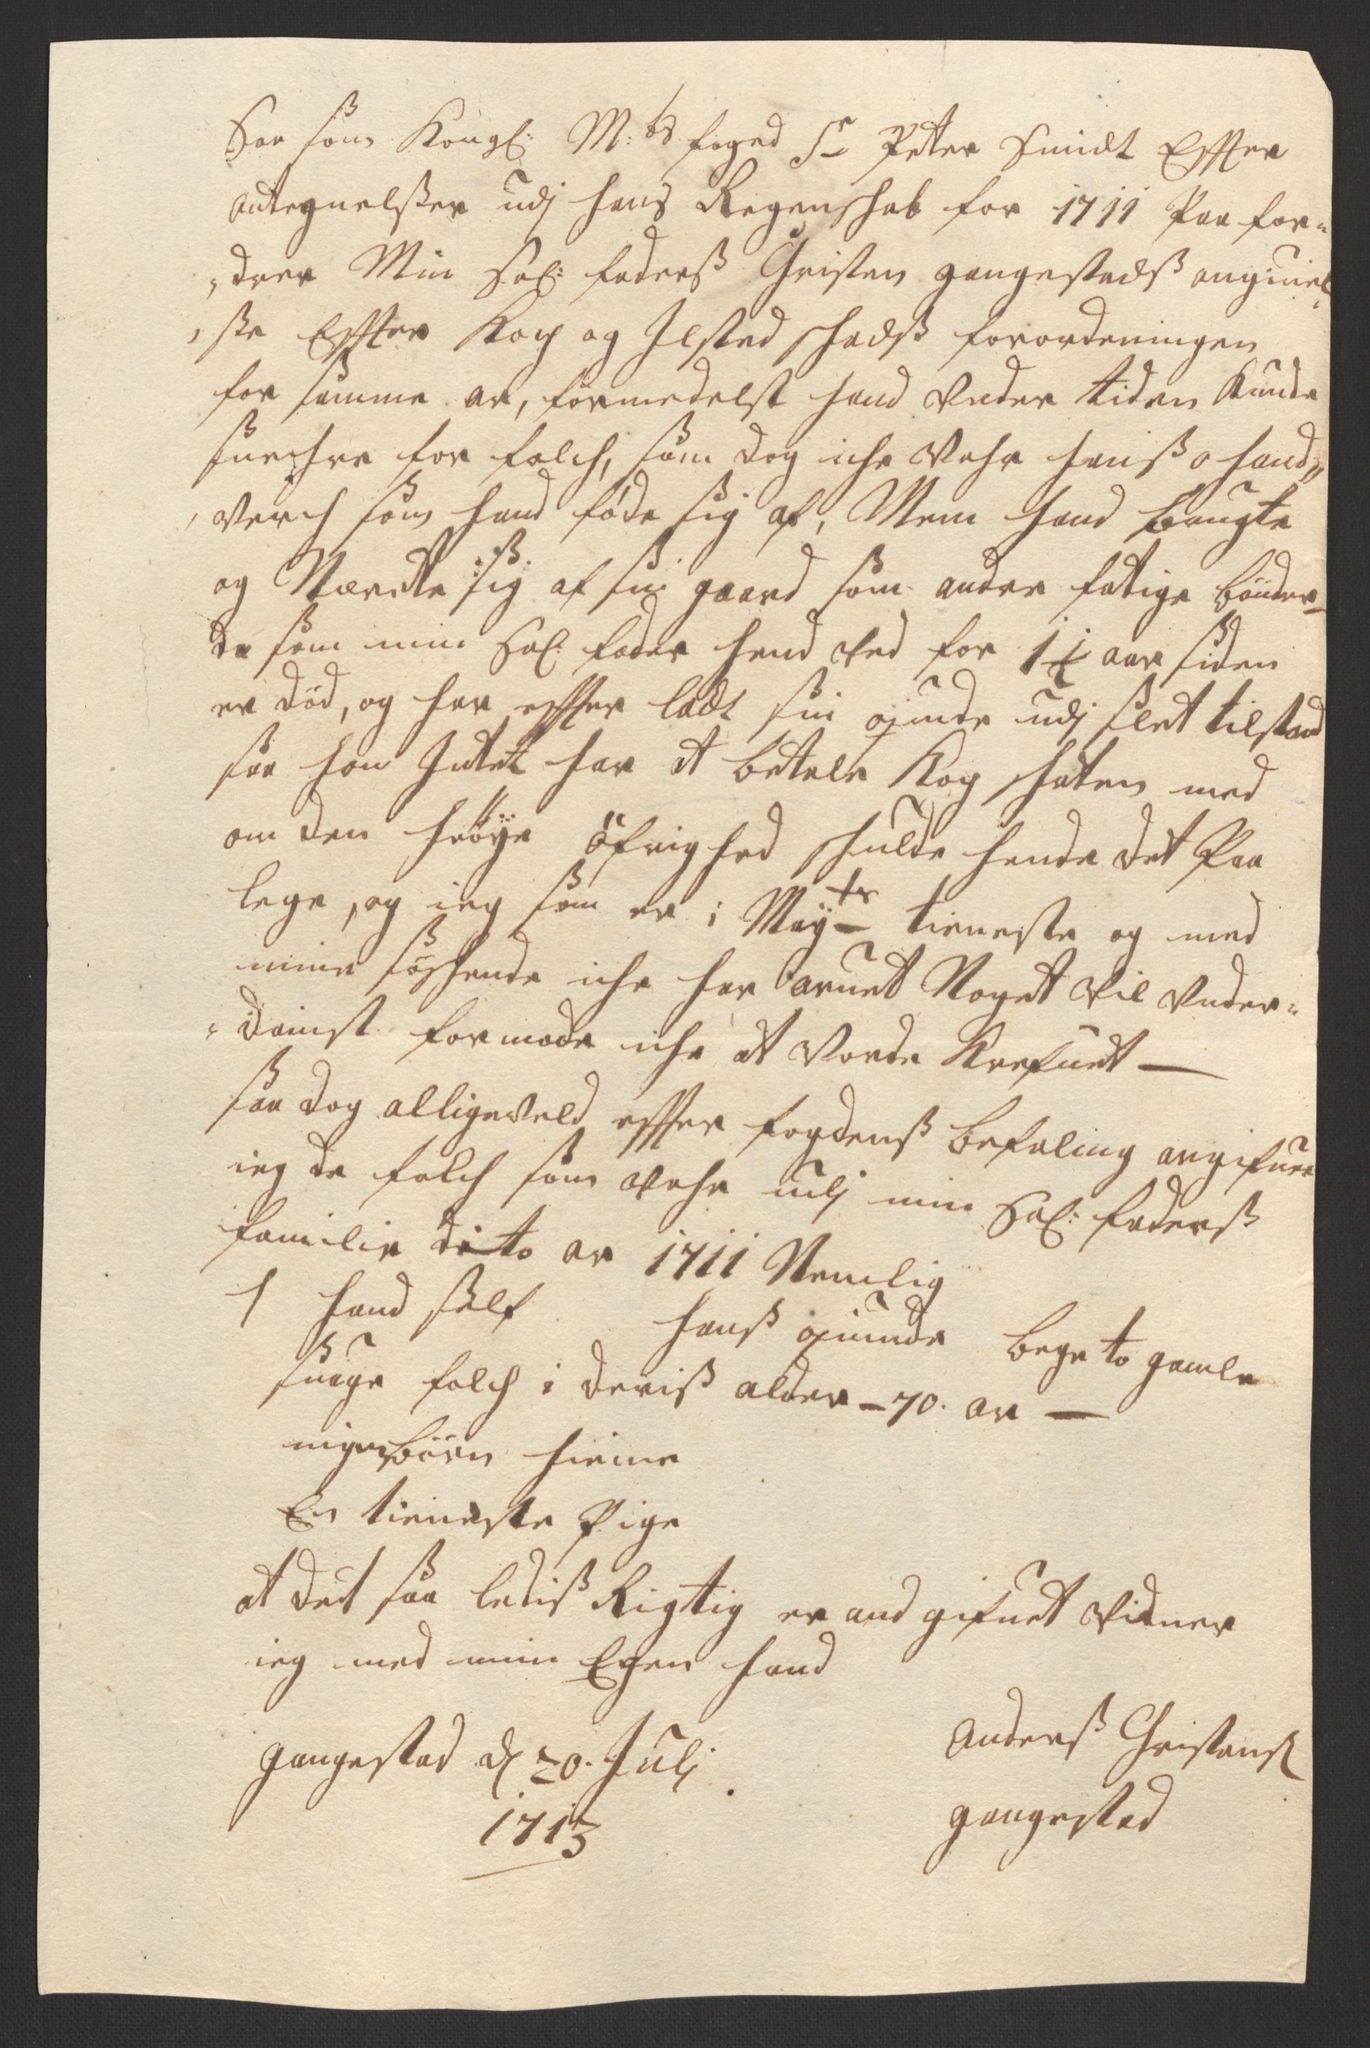 Saa som Kongl: M:ts foged Sr Peter Smidt Effter
Antegnelsser udj hans Regenskab for 1711 Paa for-
drer Min Sal: faderß Christen gangestadß angiuel-
ße Effter Kop og Ilsted skadß forordeningen
for samme ar, formedelst hand Under tiden Kunde
snechre for folch, som dog iche Vahr hanß hand-
verch som hand føde sig af, Men hand brugte
og Nærede sig af sin gaard som andre fatige bønder
da som min Sal: fader hend ved for 1½ aar siden
er død, og har effter ladt sin qvinde udj slet tilstand
saa hon Intet har at betale Kop skaten med
om den høÿe öfrighed skulde hende det Paa
lege, og ieg som er i Maÿts tieneste og med
mine søskende iche har arvet Noget vil Under-
danist formode iche at Vorde Krefuet
saa dog alligeveld effter fogdenß befaling angifuer
ieg de folch som vahr udj min Sal: faderß
familie dito ar 1711 Nemlig
1 hand self hanß qvinde bege to gamle
suage folch i deriß alder - 70. ar
ingen børn hieme
En tieneste Pige
at det saa ledis Rigtig er and gifuet vidner
ieg med min Egen hand
gangestad d 20. Julj
1713
Anderß Christens
gangestad